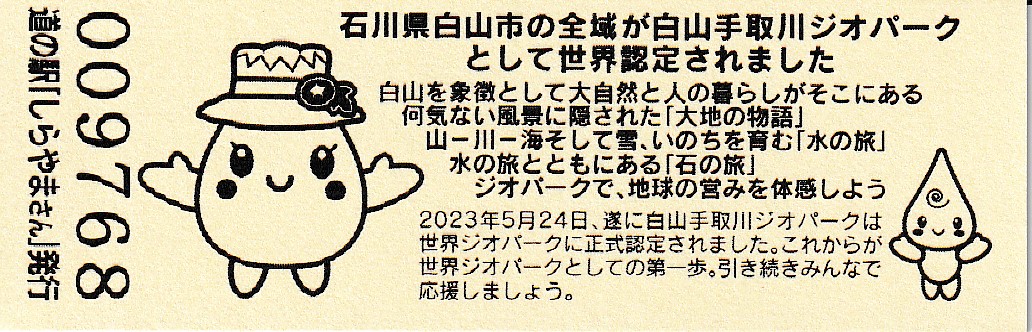 石川県白山市の全域が白山手取川ジオパーク
として世界認定されました
白山を象徴として大自然と人の暮らしがそこにある
何気ない風景に隠された「大地の物語」
山－川－海そして雪、いのちを育む「水の旅」
水の旅とともにある「石の旅」
ジオパークで、地球の営みを体感しよう
2023年5月24日、遂に白山手取川ジオパークは
世界ジオパークに正式認定されました。これからが
世界ジオパークとしての第一歩。引き続きみんなで
応援しましょう。
009768
道の駅「しらやまさん」発行